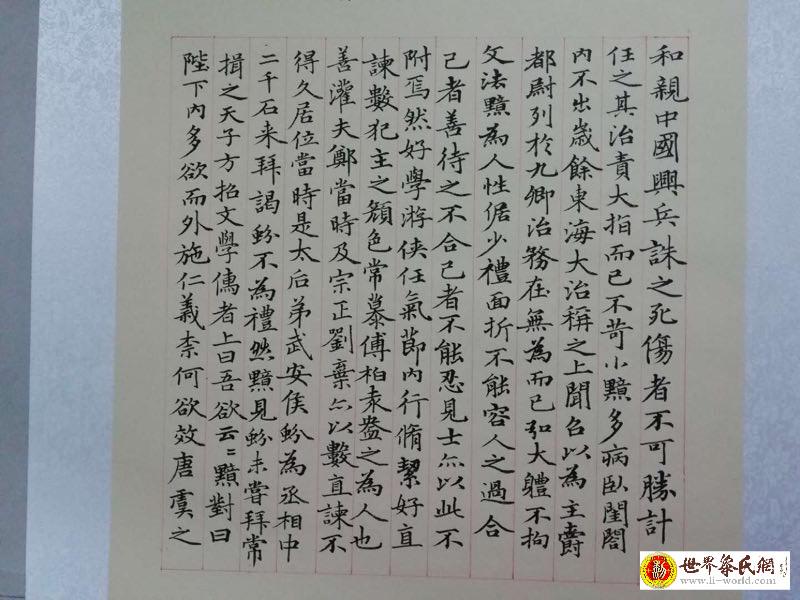 和親中國興兵誅之死傷者不可勝計
任之其治責大指而已不苛小黯多病臥閨閤
內不出歲餘東海大治稱之上聞召以為主爵
都尉列於九卿治務在無為而已弘大軆不拘
文法黯為人性倨少禮面折不能容人之過合
己者善待之不合己者不能忍見士亦以此不
附焉然好學游俠任氣節內行脩絜好直
諫數犯主之顏色常慕傅柏袁盎之為人也
善灌夫鄭當時及宗正劉棄亦以數直諫不
得久居位當時是太后弟武安侯蚡為丞相中
二千石来拜謁蚡不為禮然黯見蚡未嘗拜常
揖之天子方招文學儒者上曰吾欲云〻黯對曰
陛下內多欲而外施仁義柰何欲效唐虞之
世界氏網
www.li-world.com